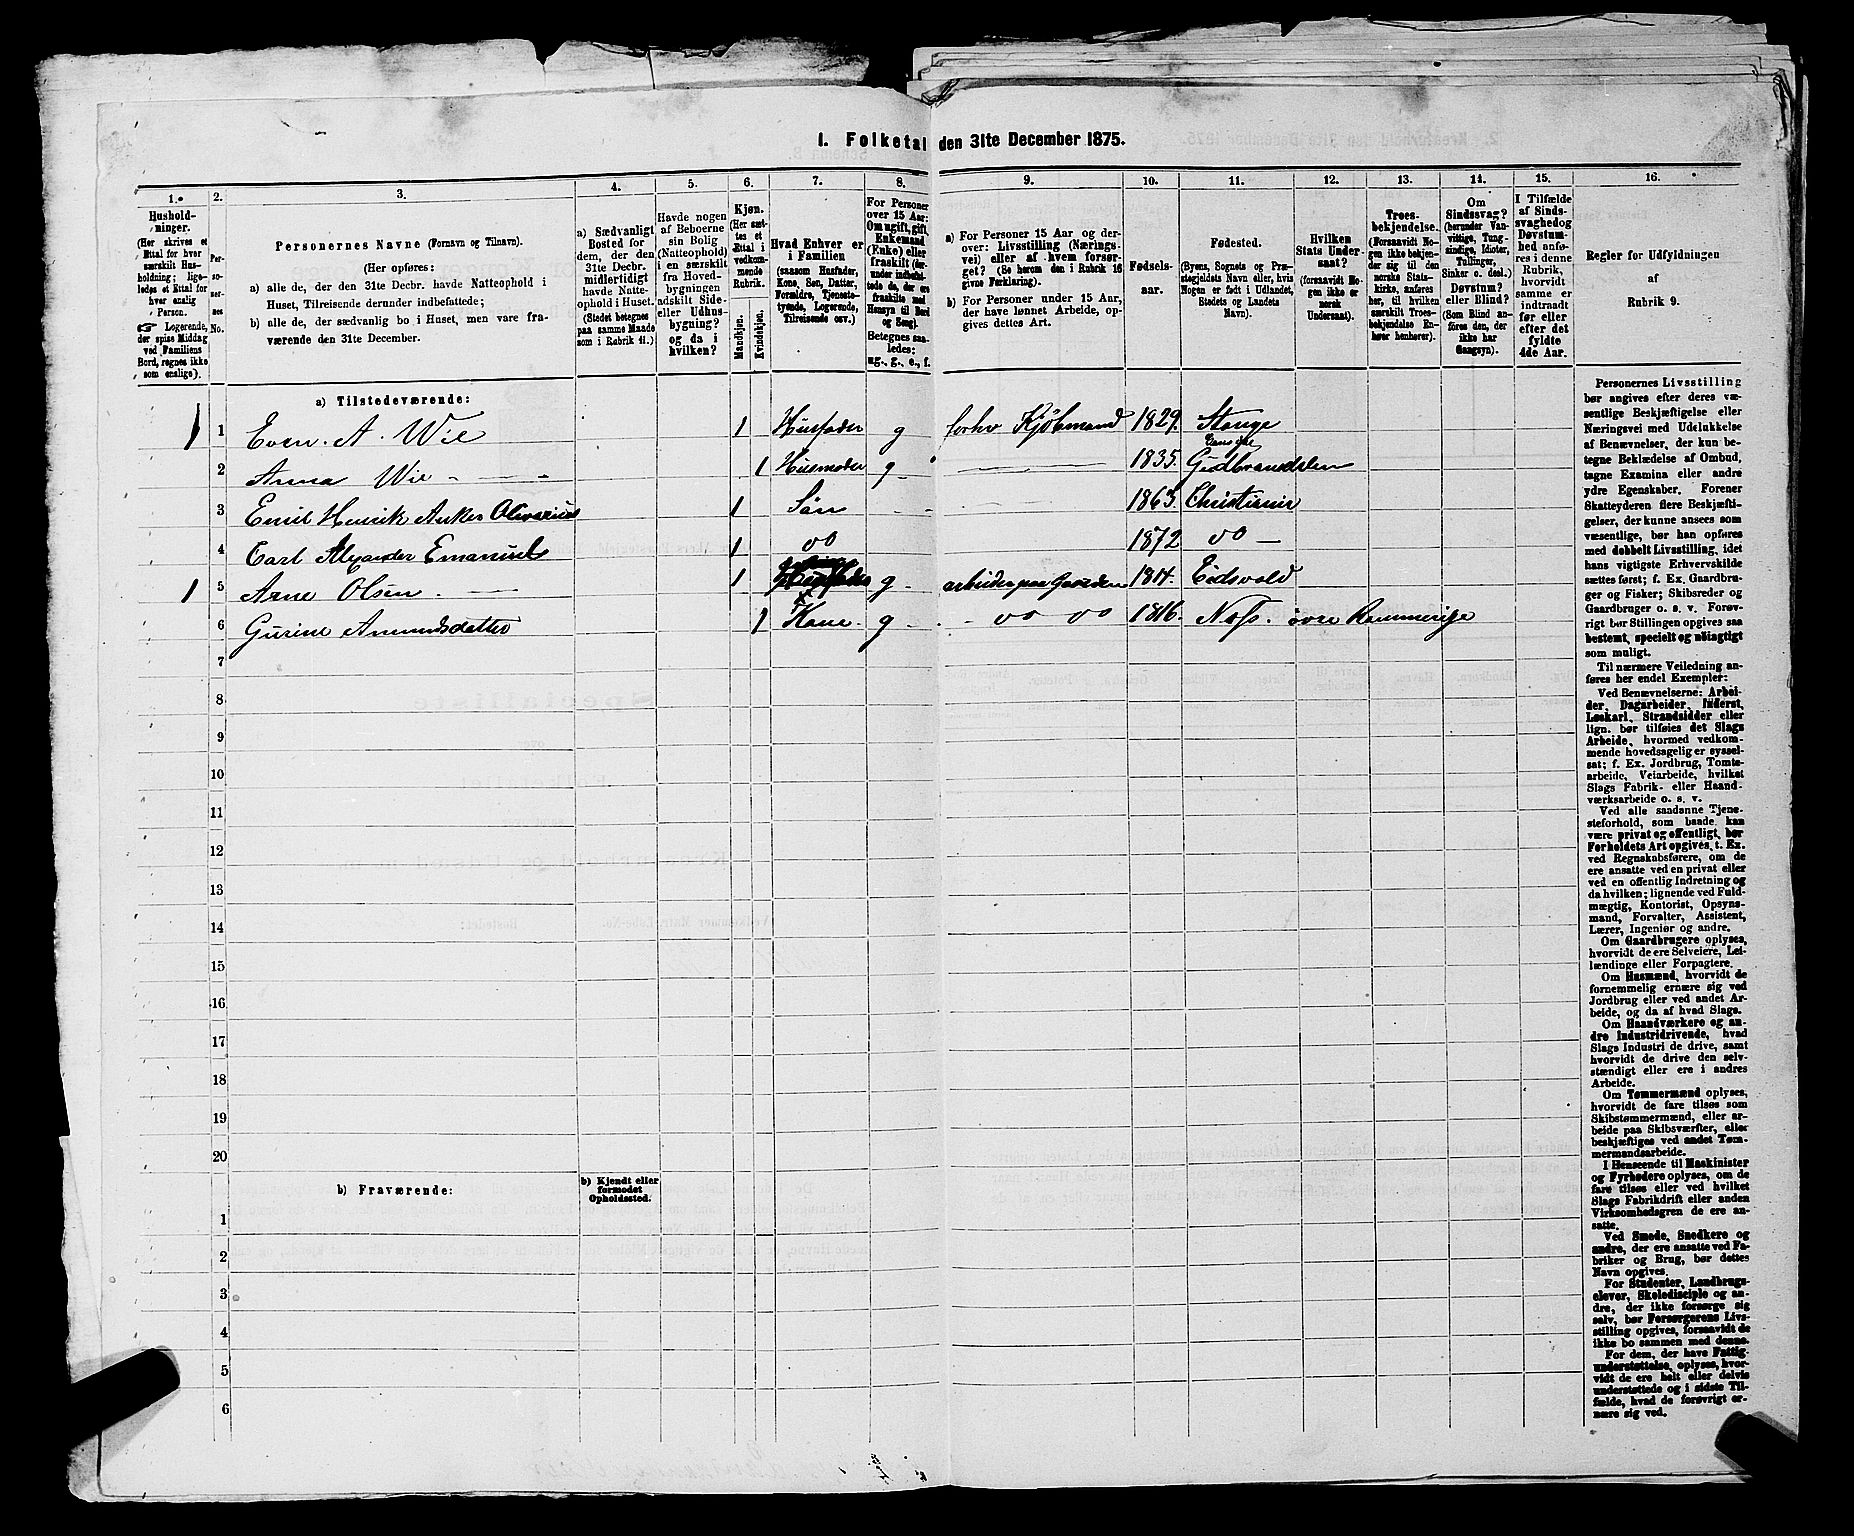 1. Folketal den 31te December 1875.
1. 2. 3. 4. 5. 6. 7. 8. 9. 10. 11. 12. 13. 14. 15. 16.
Husholdninger.
(Her skrives et
Ettal for hver
særskilt Husholdning;
ligeledes et Ettal for
hver enslig
Person.
☞ Logerende,
der spise Middag
ved Familiens
Bord, regnes ikke
som enslige).
Personernes No.
Personernes Navne (Fornavn og Tilnavn).
(Her opføres:
a) alle de, der den 31te Decbr. havde Natteophold i
Huset, Tilreisende derunder indbefattede;
b) alle de, der sædvanlig bo i Huset, men vare fraværende
den 31te December.
a) Sædvanligt
Bosted for
dem, der den
31te Decbr.
midlertidigt
havde Natteophold
i Huset.
(Stedet betegnes
paa samme Maade
som i Rubrik 11.)
Havde nogen
af Beboerne
sin Bolig
(Natteophold)
i en særskilt
fra Hovedbygningen
adskilt Side-
eller Udhusbygning?
og da i
hvilken?
Kjøn.
(Her sættes
et
Ettal i
vedkommende
Rubrik.
Mandkjøn.
Kvindekjøn.
Hvad Enhver er
i Familien
(saasom Husfader,
Kone, Søn, Datter,
Forældre, Tjenestetyende,
Logerende,
Tilreisende osv.)
For Personer
over 15 Aar:
Om ugift, gift,
Enkemand
(Enke) eller
fraskilt (derunder
indbefattede
de, der ere
fraskilte med
Hensyn til Bord
og Seng).
Betegnes saaledes:
ug., g., e., f.
a) For Personer 15 Aar og derover:
Livsstilling (Næringsvei)
eller af hvem forsørget?
(Se herom den i Rubrik 16
givne Forklaring).
b) For Personer under 15 Aar,
der have lønnet Arbeide, opgives
dettes Art.
Fødselsaar.
Fødested.
(Byens, Sognets og Præstegjeldets
Navn eller, hvis
Nogen er født i Udlandet,
Stedets og Landets
Navn).
Hvilken
Stats Undersaat?
(forsaavidt Nogen
ikke er
norsk
Undersaat).
Troesbekjendelse.
(Forsaavidt Nogen
ikke bekjender
sig til den
norske Statskirke,
anføres
her, til hvilken
særskilt Troesbekjendelse
Enhver
henhører).
Om
Sindssvag?
(herunder Vanvittige,
Tungsindige,
Idioter,
Tullinger,
Sinker o. desl.)
Døvstum?
eller Blind?
(Som Blind anføres
den, der
ikke har
Gangsyn).
I Tilfælde
af Sindssvaghed
og
Døvstumhed
anføres
i denne
Rubrik,
hvorvidt
samme er
indtraadt
før eller
efter det
fyldte
4de Aar.
Regler for Udfyldningen
af
Rubrik 9.
a) Tilstedeværende:
1 1 Even. A. Wie 1 Husfader g forhv Kjøbmand 1829. Stange
2 Anna Wie 1 Husmoder g 1835. Gudbrandslen
3 Emil Henrik Anker Olivarius 1 Søn 1863. Christiania
4 Carl Alexander Emanuel 1 do 1872 do
1 5 Arne Olsen 1 g arbeider paa Gaarden 1814. Eidsvold
6 Gurine Amundsdatter 1 Kone g do do 1816. Næs. övre Rommerige
7
8
9
10
11
12
13
14
15
16
17
18
19
20
b) Fraværende:
b) Kjendt eller
formodet
Opholdssted.
1
2
3
4
5
6
Personernes Livsstilling
bør angives efter deres væsentlige
Beskjæftigelse eller
Næringsvei med Udelukkelse
af Benævnelser, der kun betegne
Beklædelse af Ombud,
tagne Examina eller andre
ydre Egenskaber. Forener
Skatteyderen flere Beskjæftigelser,
der kunne ansees som
væsentlige, bør han opføres
med dobbelt Livsstilling, idet
hans vigtigste Erhvervskilde
sættes først; f. Ex. Gaardbruger
og Fisker; Skibsreder og
Gaardbruger o. s. v. Forøvrigt
bør Stillingen opgives saa
bestemt, specielt og nøiagtigt
som muligt.
Til nærmere Veiledning anføres
her endel Exempler:
Ved Benævnelserne: Arbeider,
Dagarbeider, Inderst,
Løskarl, Strandsidder eller
lign. bør tilføies det Slags
Arbeide, hvormed vedkommende
hovedsagelig er sysselsat;
f. Ex. Jordbrug, Tomtearbeide,
Veiarbeide, hvilket
Slags Fabrik- eller Haandværksarbeide
o. s. v.
Ved alle saadanne Tjenesteforhold,
som baade kan
være privat og offentligt, bør
Forholdets Art opgives, t. Ex.
ved Regnskabsførere, om de
ere ansatte ved en privat eller
ved en offentlig Indretning og
da hvilken; lignende ved Fuldmægtig,
Kontorist, Opsynsmand,
Forvalter, Assistent,
Lærer, Ingeniør og andre.
Om Gaardbrugere oplyses,
hvorvidt de ere Selveiere, Leilændinge
eller Forpagtere.
Om Husmænd, hvorvidt de
fornemmelig ernære sig ved
Jordbrug eller ved andet Arbeide,
og da af hvad Slags.
Om Haandværkere og andre
Industridrivende, hvad
Slags Industri de drive, samt
hvorvidt de drive den selvstændigt
eller ere i andres
Arbeide.
Om Tømmermænd oplyses,
hvorvidt de fare tilsøs som
Skibstømmermænd, eller arbeide
paa Skibsværfter, eller
beskjæftiges ved andet Tømmermandsarbeide.
I Henseende til Maskinister
og Fyrbødere oplyses, om de
fare tilsøs eller ved hvilket
Slags Fabrikdrift eller anden
Virksomhedsgren de ere ansatte.
Ved Smede, Snedkere og
andre, der ere ansatte ved Fabriker
og Brug, bør dettes
Navn opgives.
For Studenter, Landbrugselever,
Skoledisciple og andre,
der ikke forsørge sig
selv, bør Forsørgerens Livsstilling
opgives, forsaavidt de
ikke bo sammen med denne.
For dem, der have Fattigunderstøttelse,
oplyses, hvorvidt
de ere helt eller delvis
understøttede og i sidste Tilfælde,
hvad de forøvrigt ernære
sig ved.